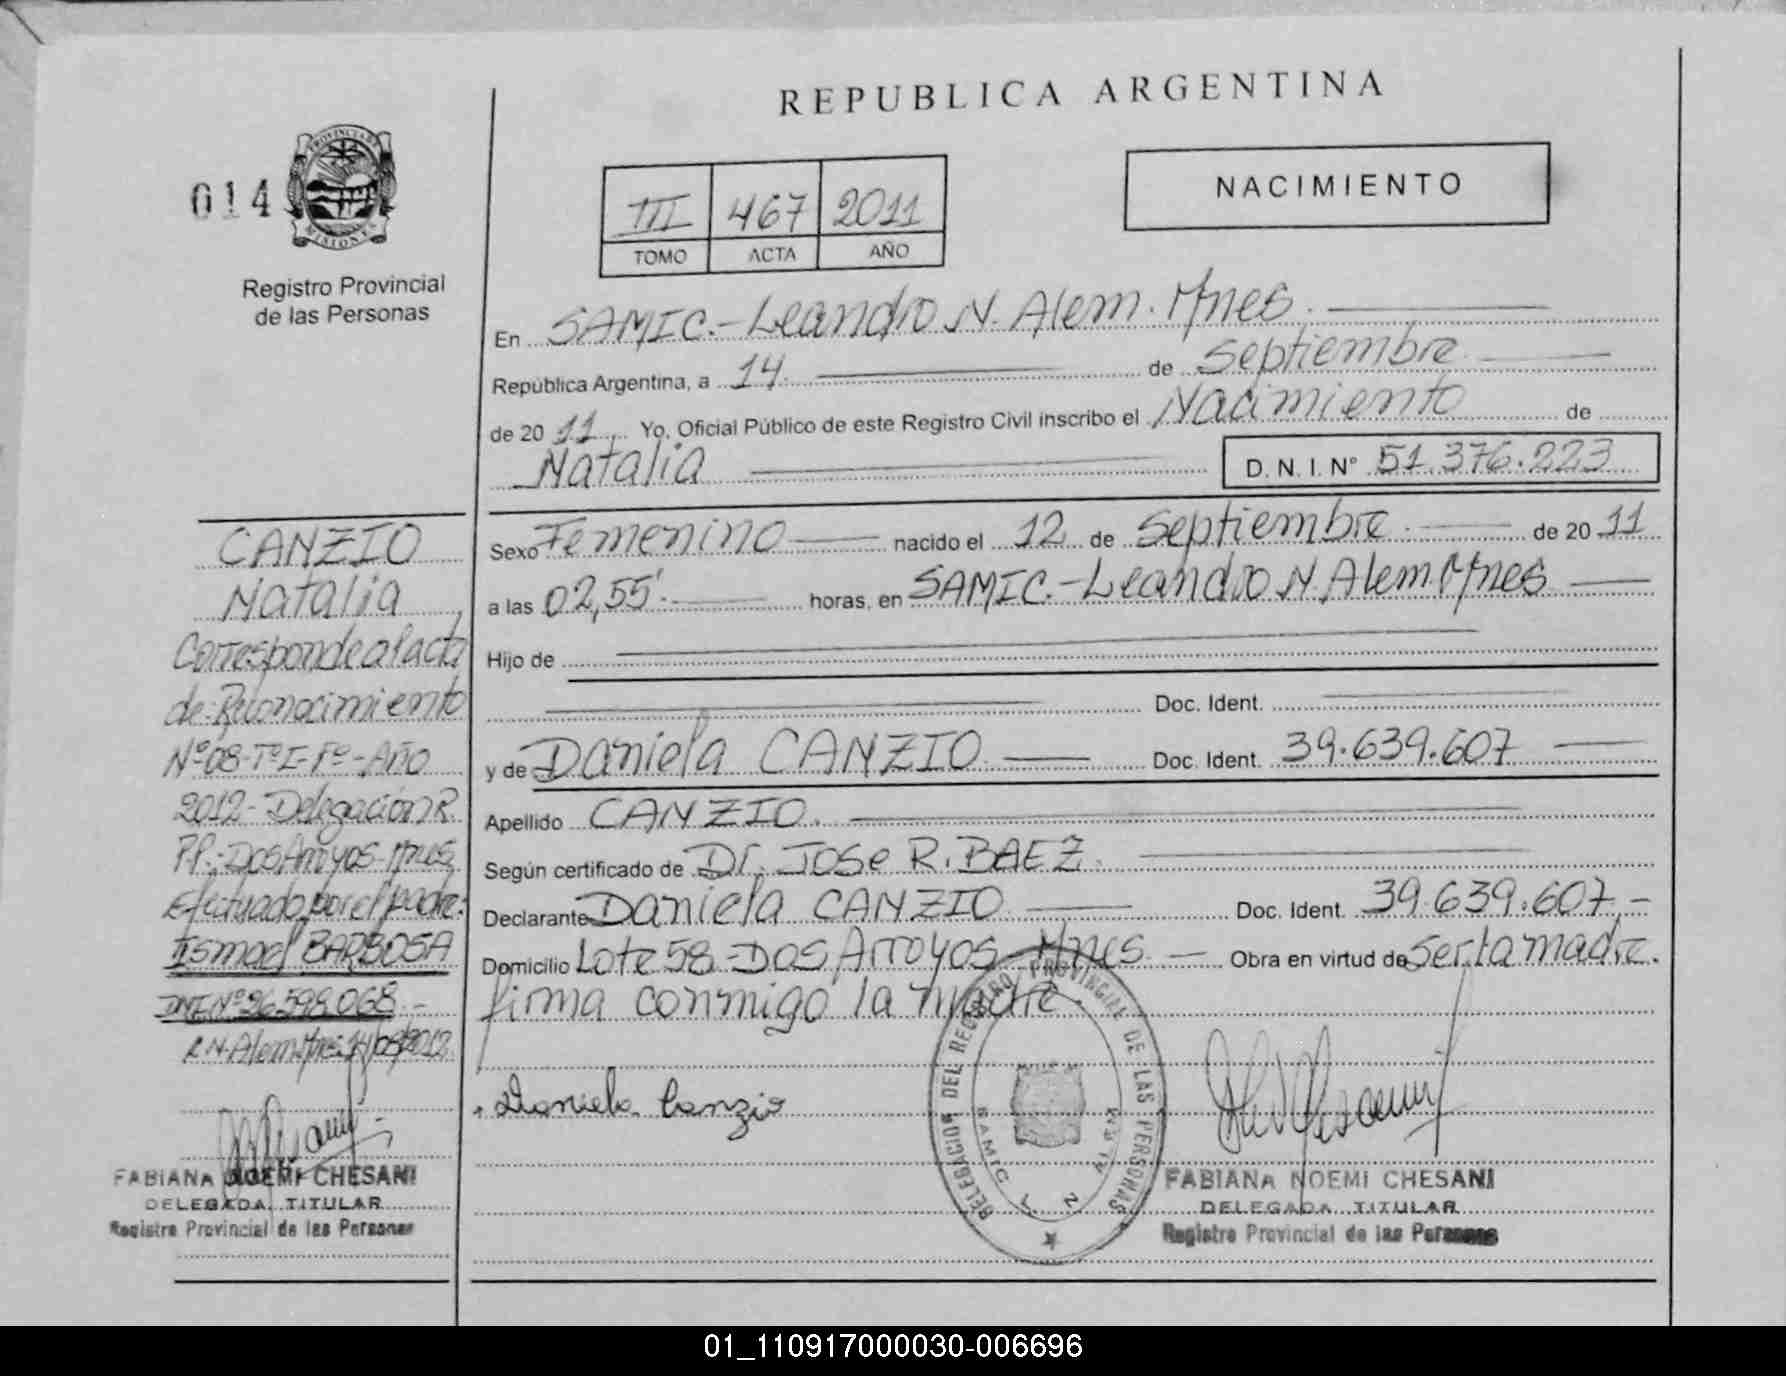 REPUBLICA ARGENTINA
014
PROVINCIA DE MISIONES
Registro Provincial
de las Personas
III 467 2011
TOMO ACTA AÑO
NACIMIENTO
En SAMIC.-Leandro N. Alem. Mnes.
República Argentina, a 14. de Septiembre
de 20 11 Yo, Oficial Público de este Registro Civil inscribo el Nacimiento de
Natalia D. N. I. N° 51.376.223
Sexo Femenino nacido el 12 de Septiembre. de 20 11
a las 02,55'. horas, en SAMIC.-Leandro N. Alem. Mnes
Hijo de
Doc. Ident.
y de Daniela CANZIO Doc. Ident. 39.639.607
Apellido CANZIO.
Según certificado de Dr. Jose R. BAEZ.
Declarante Daniela CANZIO Doc. Ident. 39.639.607.-
Domicilio Lote 58-Dos Arroyos Mnes Obra en virtud de Ser la madre.
firma conmigo la madre.
Daniela Canzio
DELEGACION DEL REGISTRO PROVINCIAL DE LAS PERSONAS
SAMIC L N ALEM
FABIANA NOEMI CHESANI
DELEGADA TITULAR
Registro Provincial de las Personas
CANZIO
Natalia
Corresponde al acta
de Reconocimiento
Nº08-TºI-Fº-Año
2012-Delegación R.
PP.; Dos Arroyos-Mnes,
Efectuado por el padre:
Ismael BARBOSA
DNI Nº 36.598.068.-
L N. Alem, Mnes,
FABIANA NOEMI CHESANI
DELEGADA TITULAR
Registro Provincial de las Personas
01_110917000030-006696